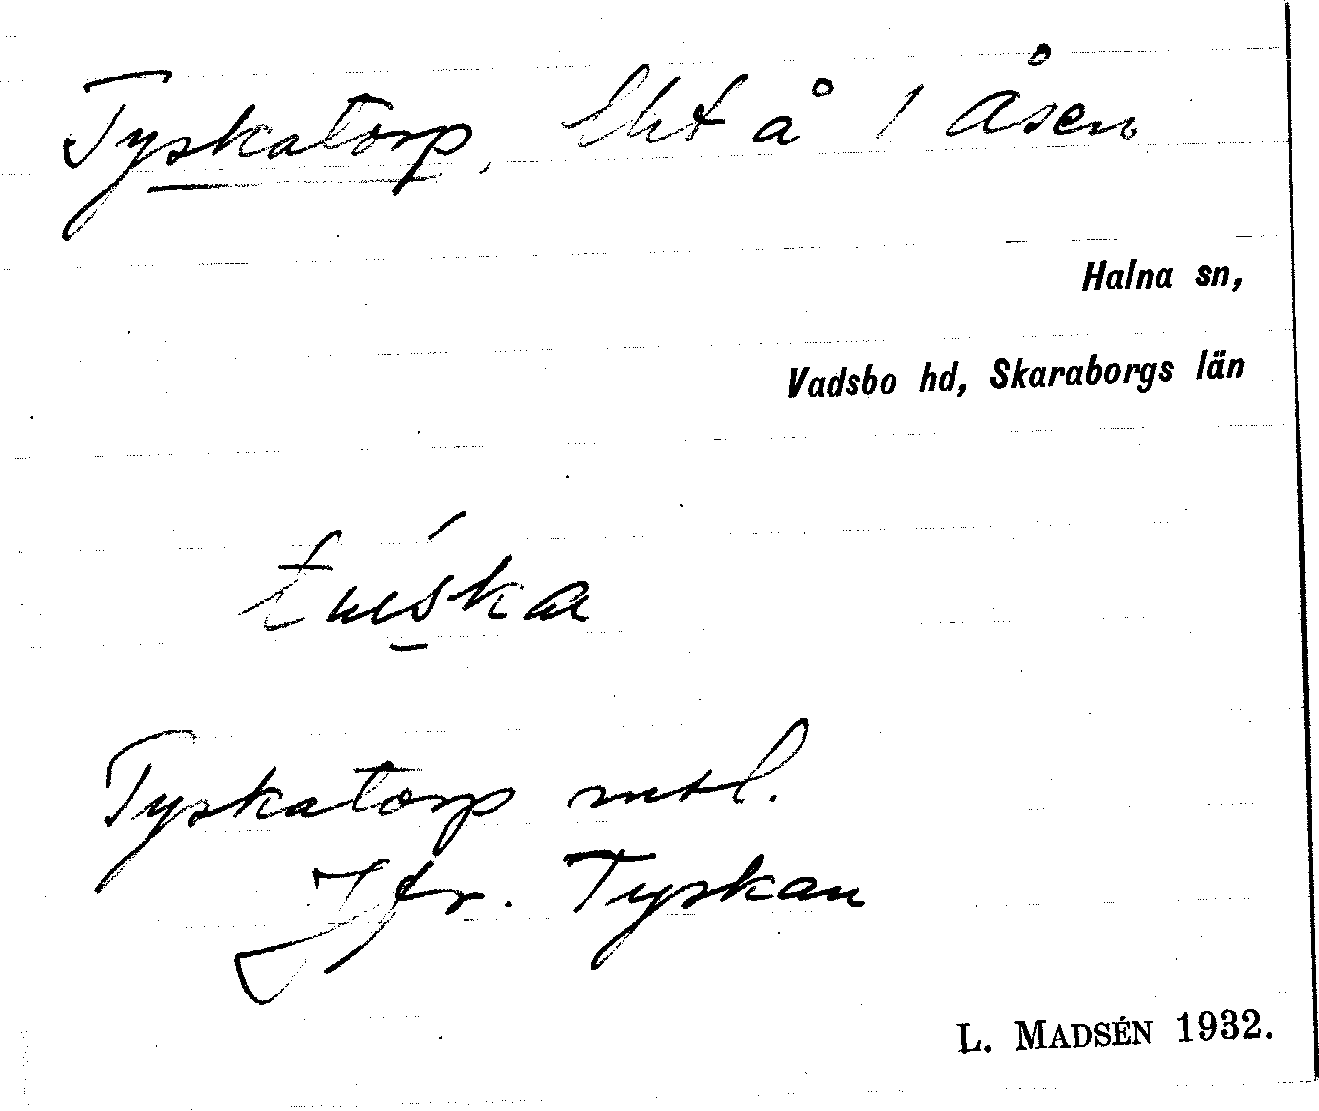 Tyskatorp, lht å 1 Åsen
Halna sn,
Vadsbo hd, Skaraborgs län
Tyskatorp mtl.
Jfr. Tyskan
L. MADSÉN 1932.